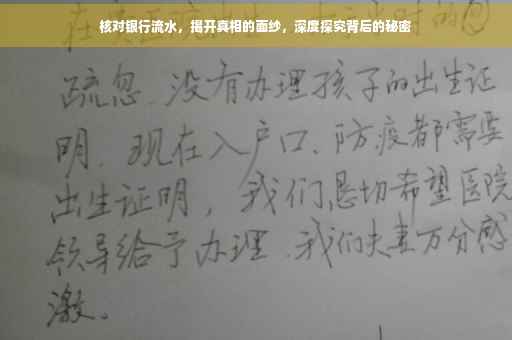 核对银行流水，揭开真相的面纱，深度探究背后的秘密
疏忽、没有办理孩子的出生证
明、现在入户口、防疫都需要
出生证明，我们恳切希望医院
领导给予办理、我们夫妻万分感
激。